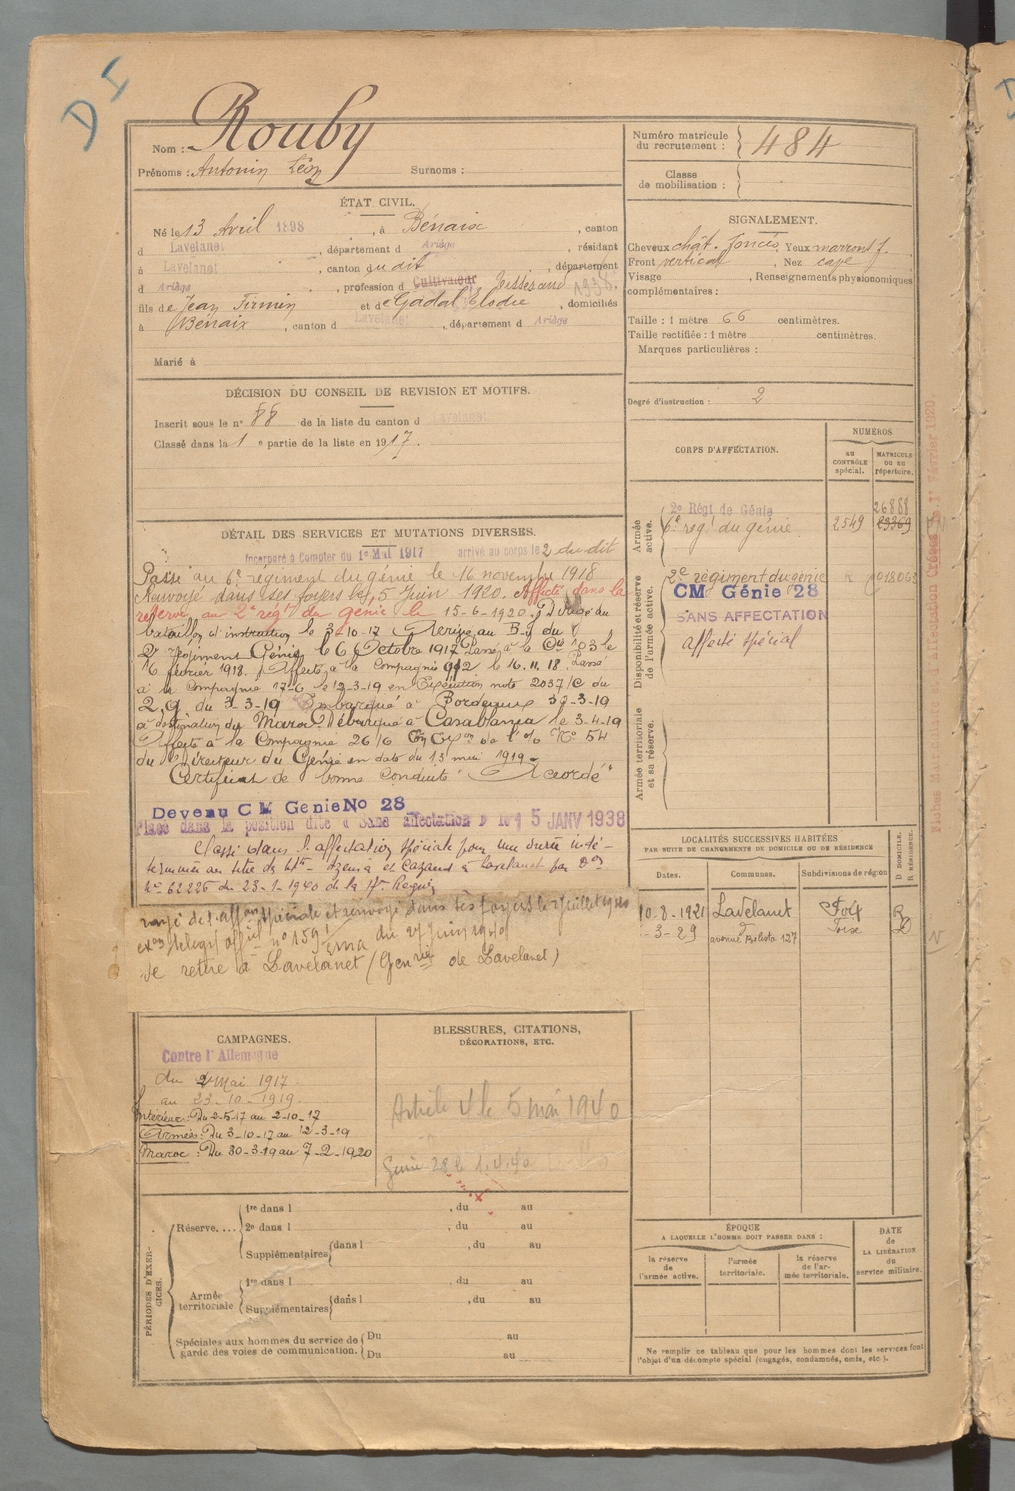 D I
Nom : Rouby
Prénoms : Antonin Léon Surnoms :
Numéro matricule du recrutement : 484
Classe de mobilisation :
ÉTAT CIVIL.
Né le 13 Avril 1898, à Bénaix, canton
d Lavelanet, département d Ariège, résidant
à Lavelanet, canton dudit, département
d Ariège, profession d Cultivateur Tisserand 1938,
fils de Jean Firmin et de Gadal Elodie, domiciliés
à Bénaix, canton d Lavelanet, département d Ariège
Marié à
SIGNALEMENT.
Cheveux chât. foncés, Yeux marrons f.
Front vertical, Nez cave
Visage , Renseignements physionomiques
complémentaires :
Taille : 1 mètre 66 centimètres.
Taille rectifiée : 1 mètre centimètres.
Marques particulières :
Degré d'instruction : 2
DÉCISION DU CONSEIL DE REVISION ET MOTIFS.
Inscrit sous le n° 88 de la liste du canton d Lavelanet
Classé dans la 1e partie de la liste en 1917.
DÉTAIL DES SERVICES ET MUTATIONS DIVERSES.
Incorporé à Compter du 1er Mai 1917 arrivé au corps le 2 du dit
Passé au 6e régiment du génie le 16 novembre 1918
Renvoyé dans ses foyers le 5 Juin 1920. Affecté dans la
réserve au 2e régt du génie le 15-6-1920. Dirigé au
bataillon d'instruction le 3-10-17 Arrivé au B.I du
2e Régiment Génie le 6 Octobre 1917 Passé à la Cie 103 le
16 février 1918. Affecté à la Compagnie 9/2 le 16.11.18. Passé
à la Compagnie 17-6 le 12-3-19 en Exécution note 2037/C du
2.G du 3-3-19 Embarqué à Bordeaux 30-3-19
à destination du Maroc. Débarqué à Casablanca le 3-4-19
Affecté à la Compagnie 26/6 En Exon de l'o/o No 54
du Directeur du Génie en date du 13 mai 1919
Certificat de bonne conduite "Accordé"
Devenu C M Génie No 28
Placé dans la position dite « Sans affectation » le 15 JANV 1938
Classé dans l'affectation spéciale pour une durée indé-
terminée au titre de Ets Azema et Cazaud à Lavelanet par Don
No 62226 du 23-1-1940 de la 17e Région
rayé de l'affon spéciale et renvoyé dans ses foyers le juillet 1940
exon télégr offiel n° 1591 EMA du 27 juin 1940
Se retire à Lavelanet (Genrie de Lavelanet)
CORPS D'AFFECTATION.
NUMÉROS
AU CONTRÔLE spécial.
MATRICULE OU AU répertoire.
Armée active.
2e Régt de Génie 26888
6e reg. du génie 2549 23369
Disponibilité et réserve de l'armée active.
2e régiment du génie
CM Génie 28
SANS AFFECTATION
affecté spécial
Armée territoriale et sa réserve.
LOCALITÉS SUCCESSIVES HABITÉES
PAR SUITE DE CHANGEMENTS DE DOMICILE OU DE RÉSIDENCE
Dates. Communes. Subdivisions de région D DOMICILE. R RÉSIDENCE.
10-8-1921 Lavelanet Foix R
-3-29 d° Foix D
avenue 127
CAMPAGNES.
Contre l'Allemagne
du 2 Mai 1917
au 23-10-1919.
Intérieur : Du 2-5-17 au 2-10-17
Armées : Du 3-10-17 au 12-3-19
Maroc : Du 30-3-19 au 7-2-1920
BLESSURES, CITATIONS,
DÉCORATIONS, ETC.
Article 4 le 5 mai 1940
Génie 28 le 1.4.40
PÉRIODES D'EXERCICES.
Réserve.... 1re dans l , du au
2e dans l , du au
Supplémentaires dans l , du au
Armée territoriale 1re dans l , du au
Supplémentaires dans l , du au
Spéciales aux hommes du service de garde des voies de communication. Du au
Du au
ÉPOQUE
A LAQUELLE L'HOMME DOIT PASSER DANS :
la réserve de l'armée active.
l'armée territoriale.
la réserve de l'armée territoriale.
DATE de LA LIBÉRATION du service militaire.
Ne remplir ce tableau que pour les hommes dont les services font
l'objet d'un décompte spécial (engagés, condamnés, omis, etc.).